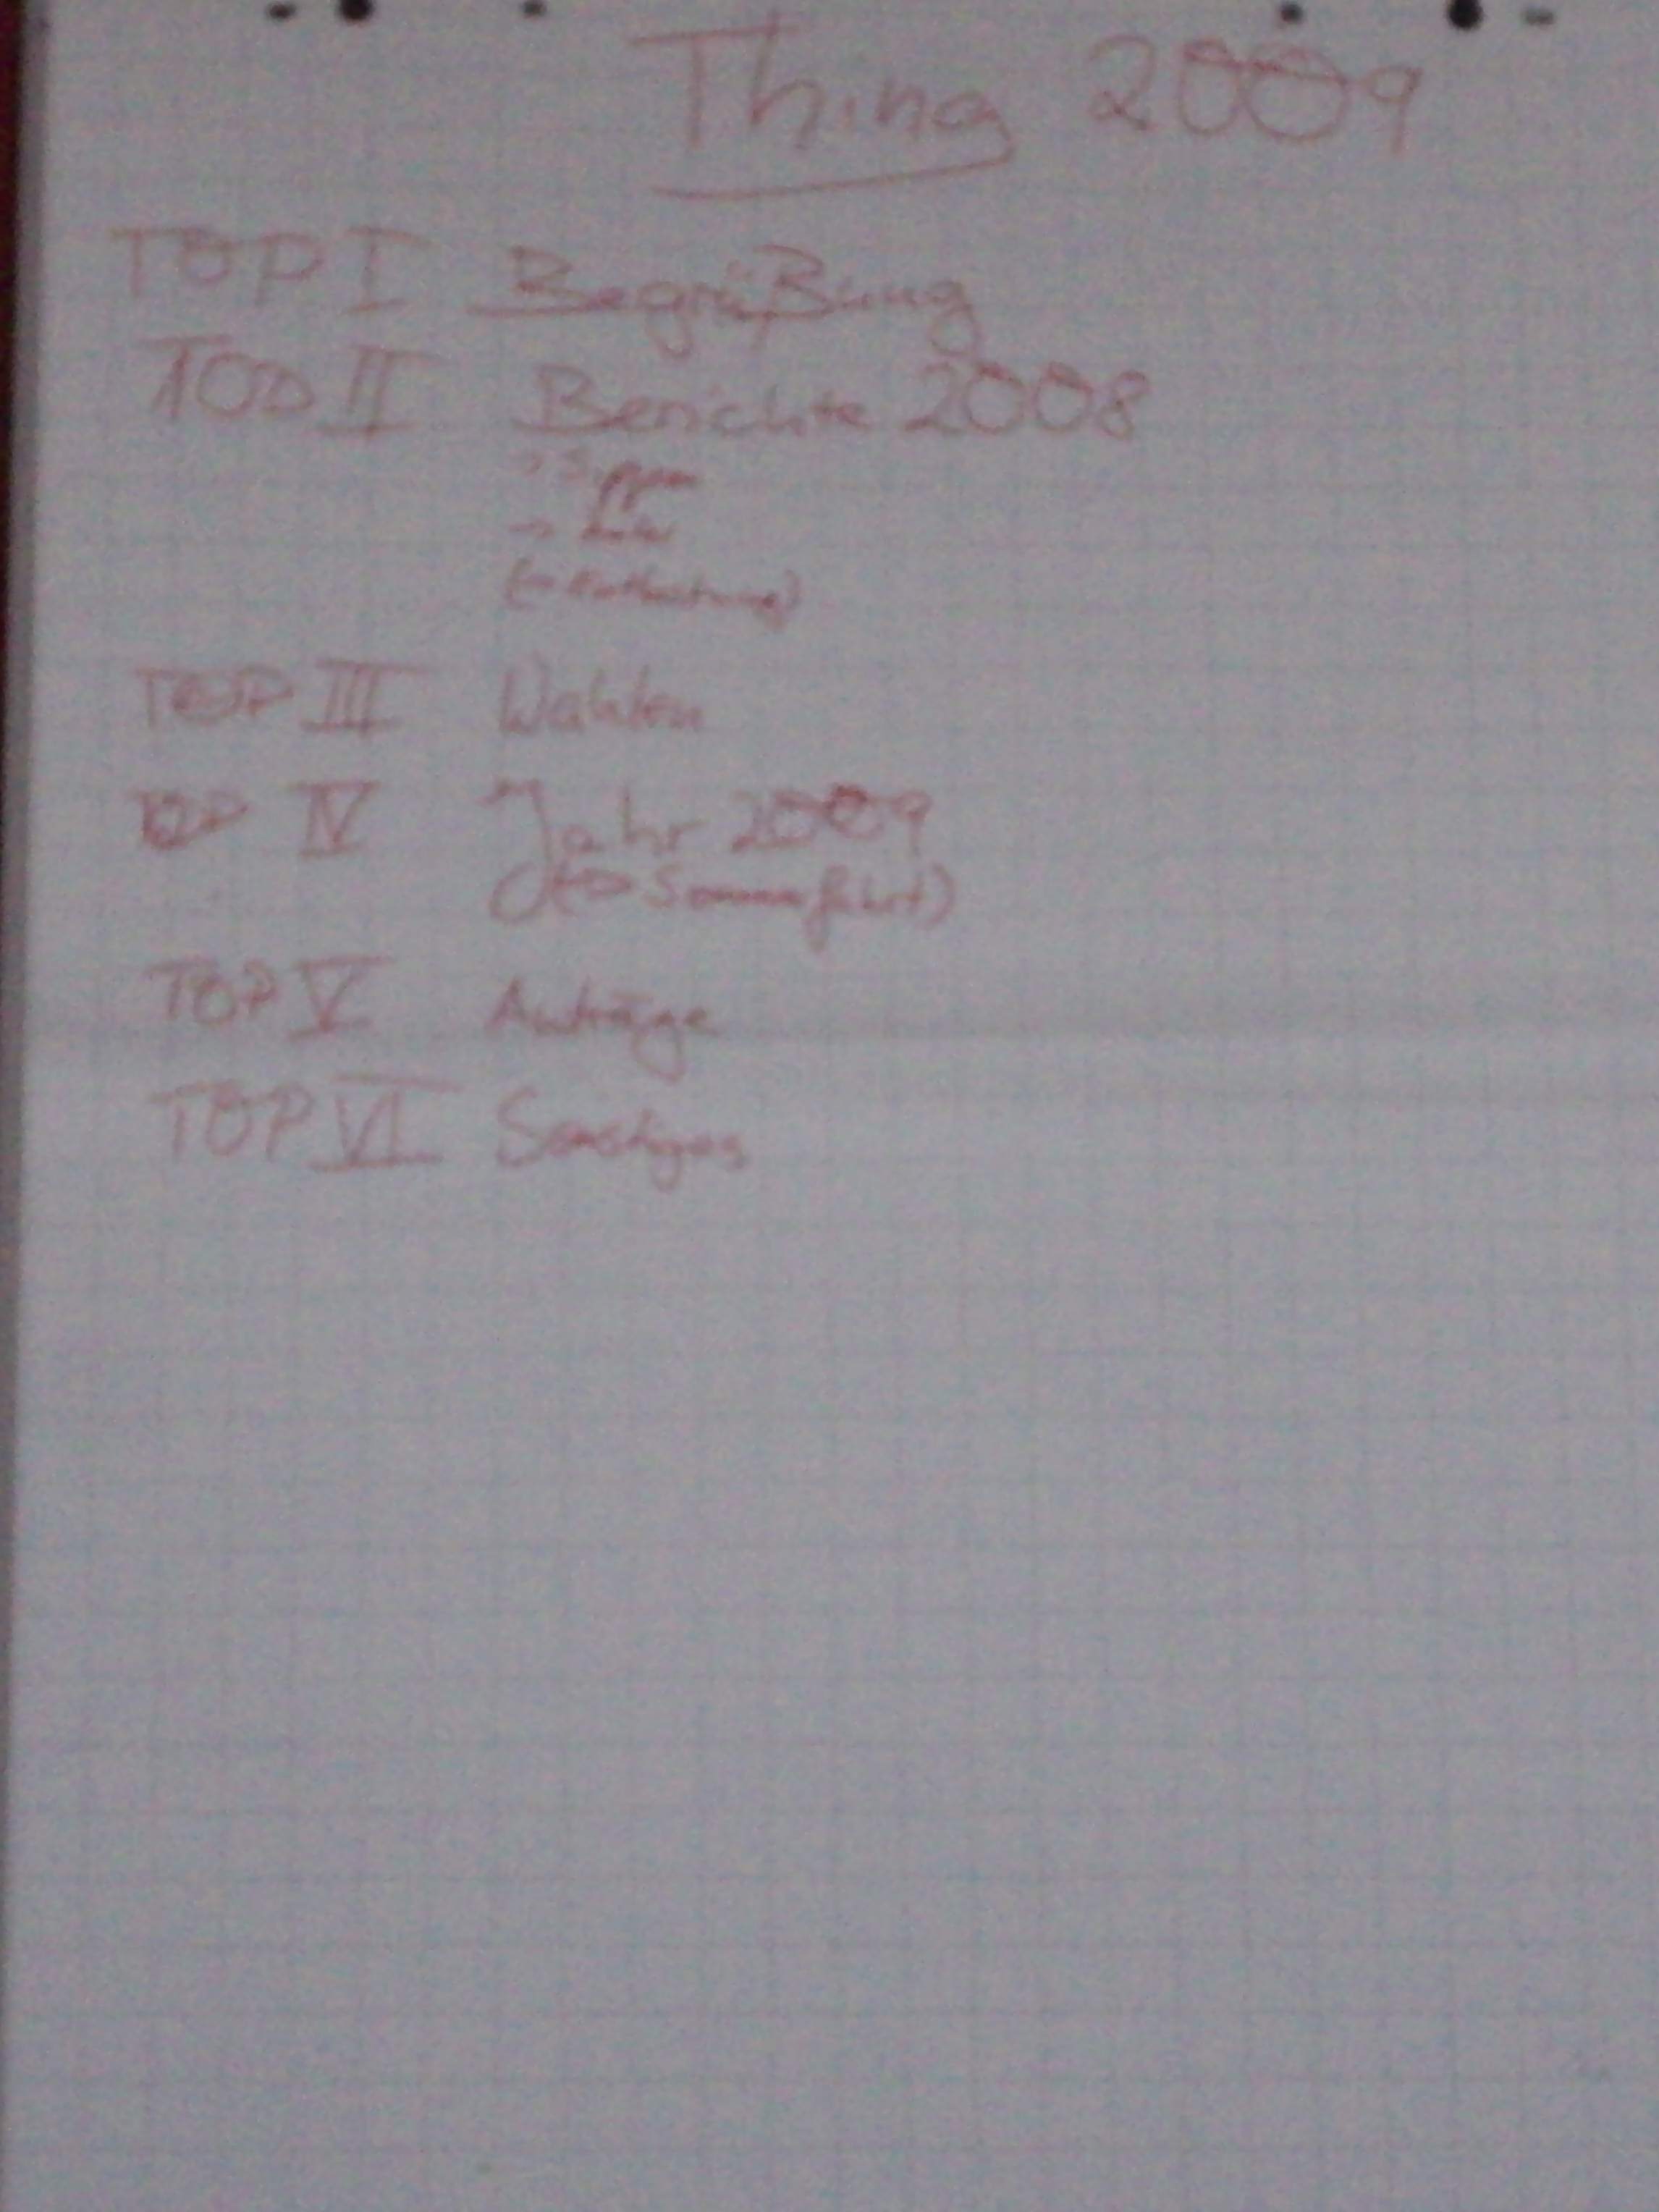 Thing 2009
TOP I Begrüßung
TOP II Berichte 2008
→ Sippen
→ Ämter
(→ Entlastung)
TOP III Wahlen
TOP IV Jahr 2009
(→ Sommerfahrt)
TOP V Anträge
TOP VI Sonstiges